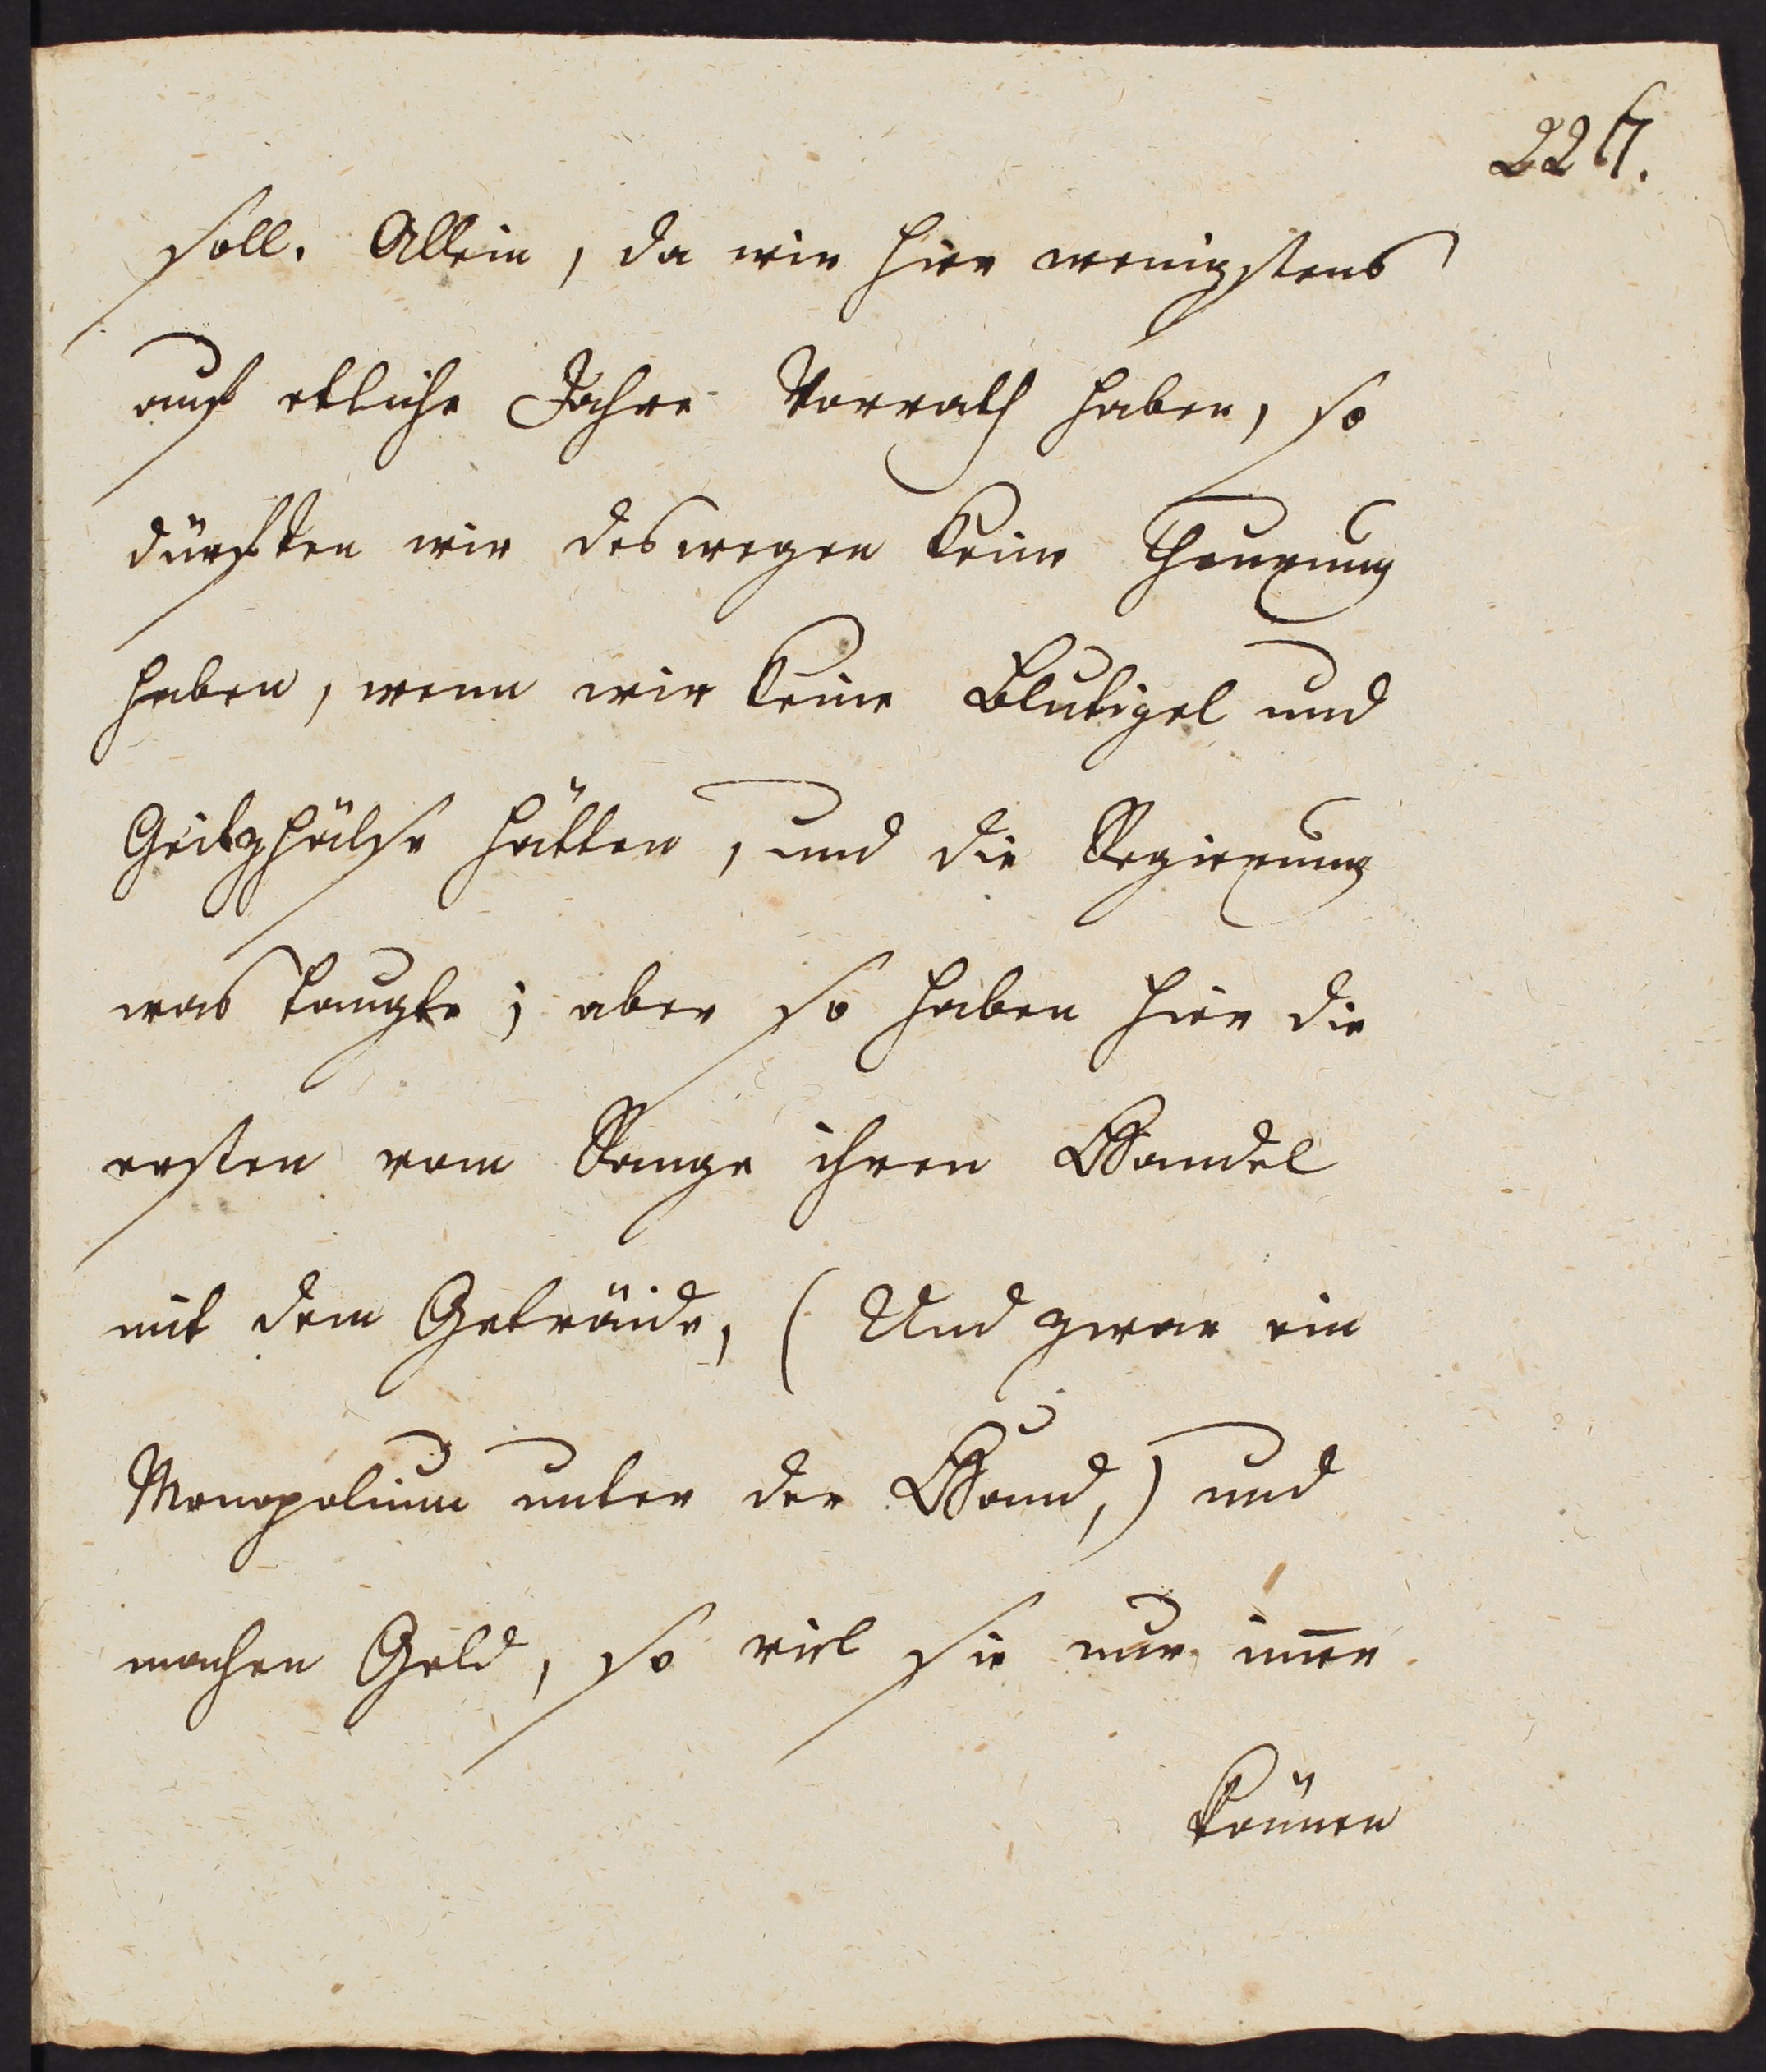 soll. Allein, da wir hier wenigstens
auf etliche Jahre Vorrath haben, so
dürften wir deswegen keine Theurung
haben, wenn wir keine Blutigel und
Geitzhälse hätten, und die Regierung
was taugte; aber so haben hier die
ersten vom Range ihren Handel
mit dem Geträide, (Und zwar ein
Monopolium unter der Hand,) und
machen Geld, so viel sie nur im̄er
können